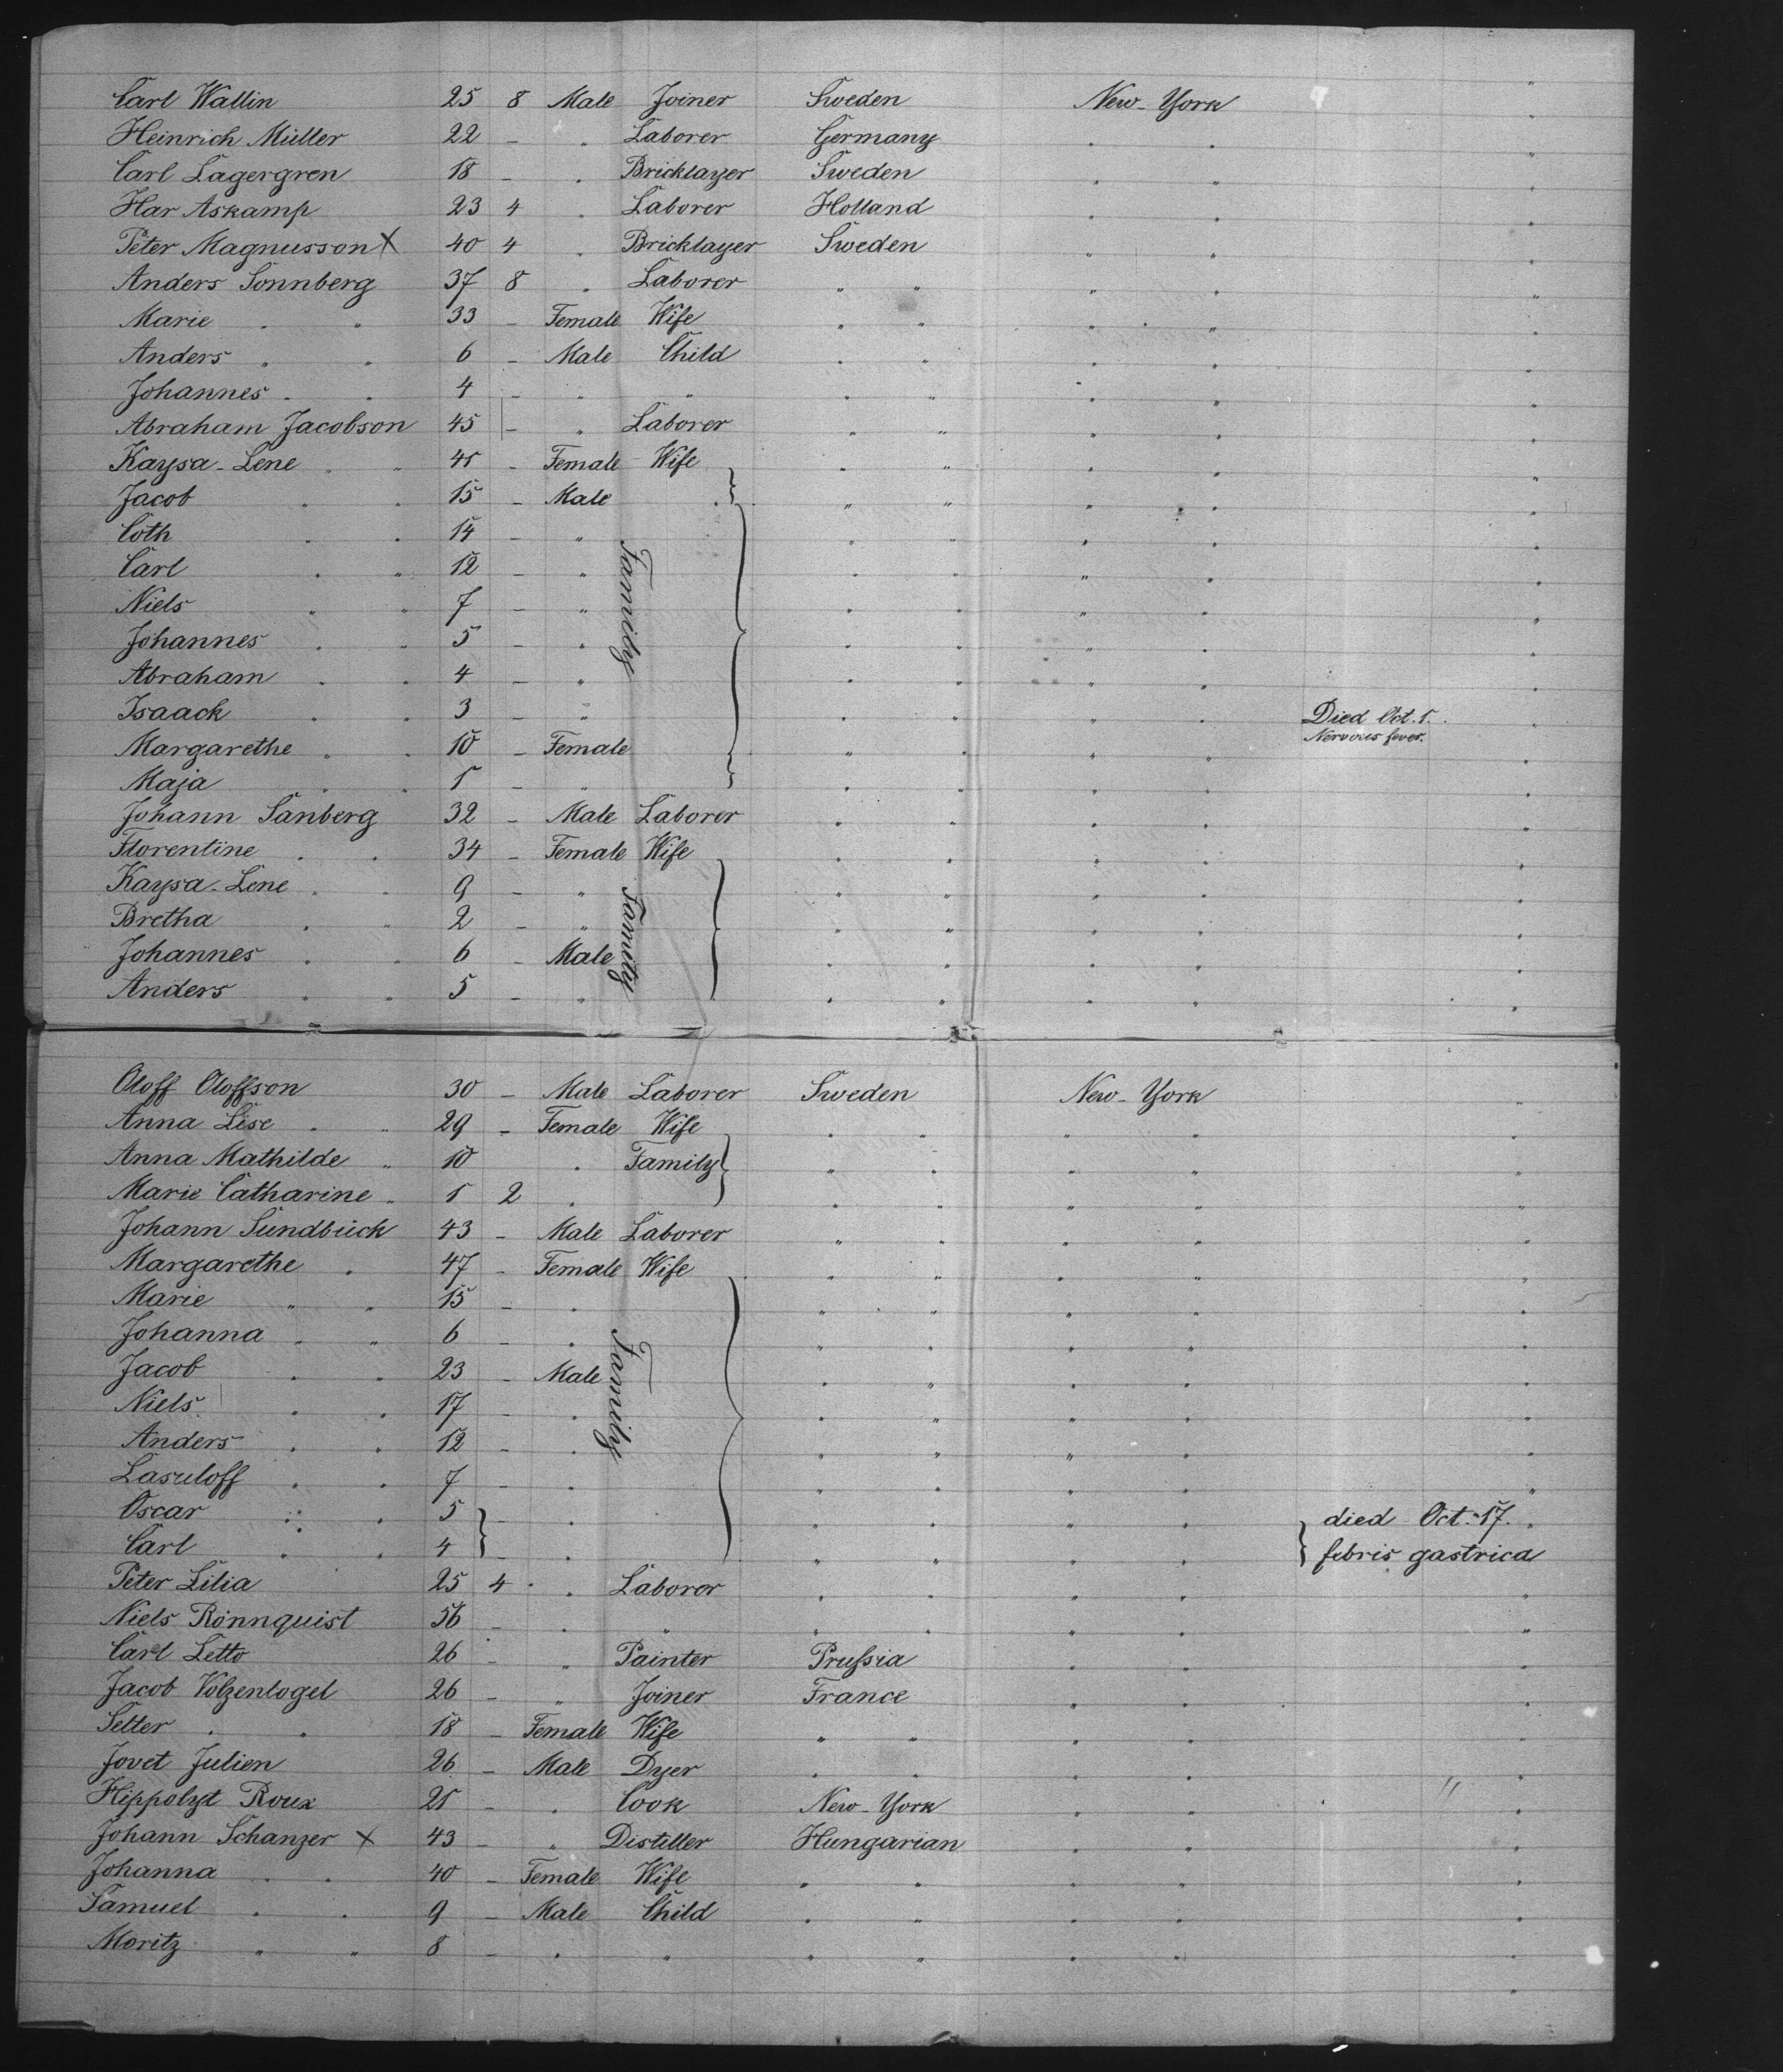 Carl Wallin 25 8 Male Joiner Sweden New-York "
Heinrich Müller 22 - " Laborer Germany " " "
Carl Lagergren 18 - " Bricklayer Sweden " " "
Har Askamp 23 4 " Laborer Holland " " "
Peter Magnusson X 40 4 " Bricklayer Sweden " " "
Anders Sonnberg 37 8 " Laborer " " " " "
Marie " " 33 - Female Wife " " " " "
Anders " " 6 - Male Child " " " " "
Johannes " " 4 - " " " " " " "
Abraham Jacobson 45 - " Laborer " " " " "
Kaysa-Lene " " 41 - Female Wife " " " " "
Jacob " " 15 - Male " " " " "
Coth " " 14 - " " " " " "
Carl " " 12 - " Family " " " " "
Niels " " 7 - " " " " " "
Johannes " " 5 - " " " " " "
Abraham " " 4 - " " " " " "
Isaack " " 3 - " " " " " Died Oct. 1. "
Margarethe " " 10 - Female " " " " Nervous fever. "
Maja " " 1 - " " " " " "
Johann Sanberg 32 - Male Laborer " " " " "
Florentine " " 34 - Female Wife " " " " "
Kaysa-Lene " " 9 - " Family " " " " "
Bretha " " 2 - " " " " " "
Johannes " " 6 - Male " " " " "
Anders " " 5 - " " " " " "
Oloff Oloffson 30 - Male Laborer Sweden New-York "
Anna Lise " " 29 - Female Wife " " " " "
Anna Mathilde " 10 " Family " " " " "
Marie Catharine " 1 2 " " " " " "
Johann Sundbück 43 - Male Laborer " " " " "
Margarethe " 47 - Female Wife " " " " "
Marie " " 15 - " " " " " "
Johanna " " 6 - " Family " " " " "
Jacob " " 23 - Male " " " " "
Niels " " 17 - " " " " " "
Anders " " 12 - " " " " " "
Lasuloff " " 7 - " " " " " "
Oscar " " 5 - " " " " " died Oct. 17. "
Carl " " 4 - " " " " " febris gastrica
Peter Lilia 25 4 " Laborer " " " " "
Niels Rönnquist 56 - " " " " " " "
Carl Letto 26 - " Painter Prussia " " "
Jacob Volzenlogel 26 - " Joiner France " " "
Setter " " 18 - Female Wife " " " " "
Jovet Julien 26 - Male Dyer " " " " "
Hippolyt Roux 21 - " Cook New-York " " " "
Johann Schanzer X 43 - " Distiller Hungarian " " "
Johanna " " 40 - Female Wife " " " " "
Samuel " " 9 - Male Child " " " " "
Moritz " " 8 - " " " " " " "